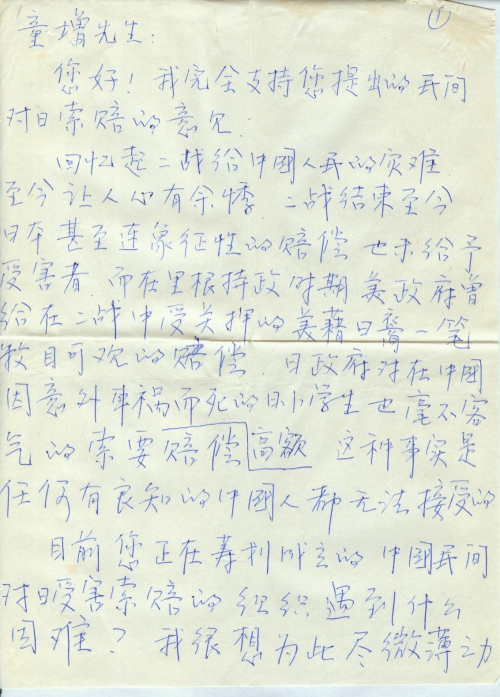 ①
童增先生:
您好! 我完全支持您提出的民间
对日索赔的意见.
回忆起二战给中國人民的灾难
至今让人心有余悸. 二战结束至今
日本甚至连象征性的赔偿 也未给予
受害者. 而在里根持政时期 美政府曾
给在二战中受关押的美藉日裔一笔
数目可观的赔偿. 日政府对在中國
因意外車祸而死的日小学生也毫不客
气的索要赔偿高额 这种事实是
任何有良知的中國人都无法接受的
目前您正在筹划成立的 中國民间
对日受害索赔的组织 遇到什么
困难? 我很想为此尽微薄之力